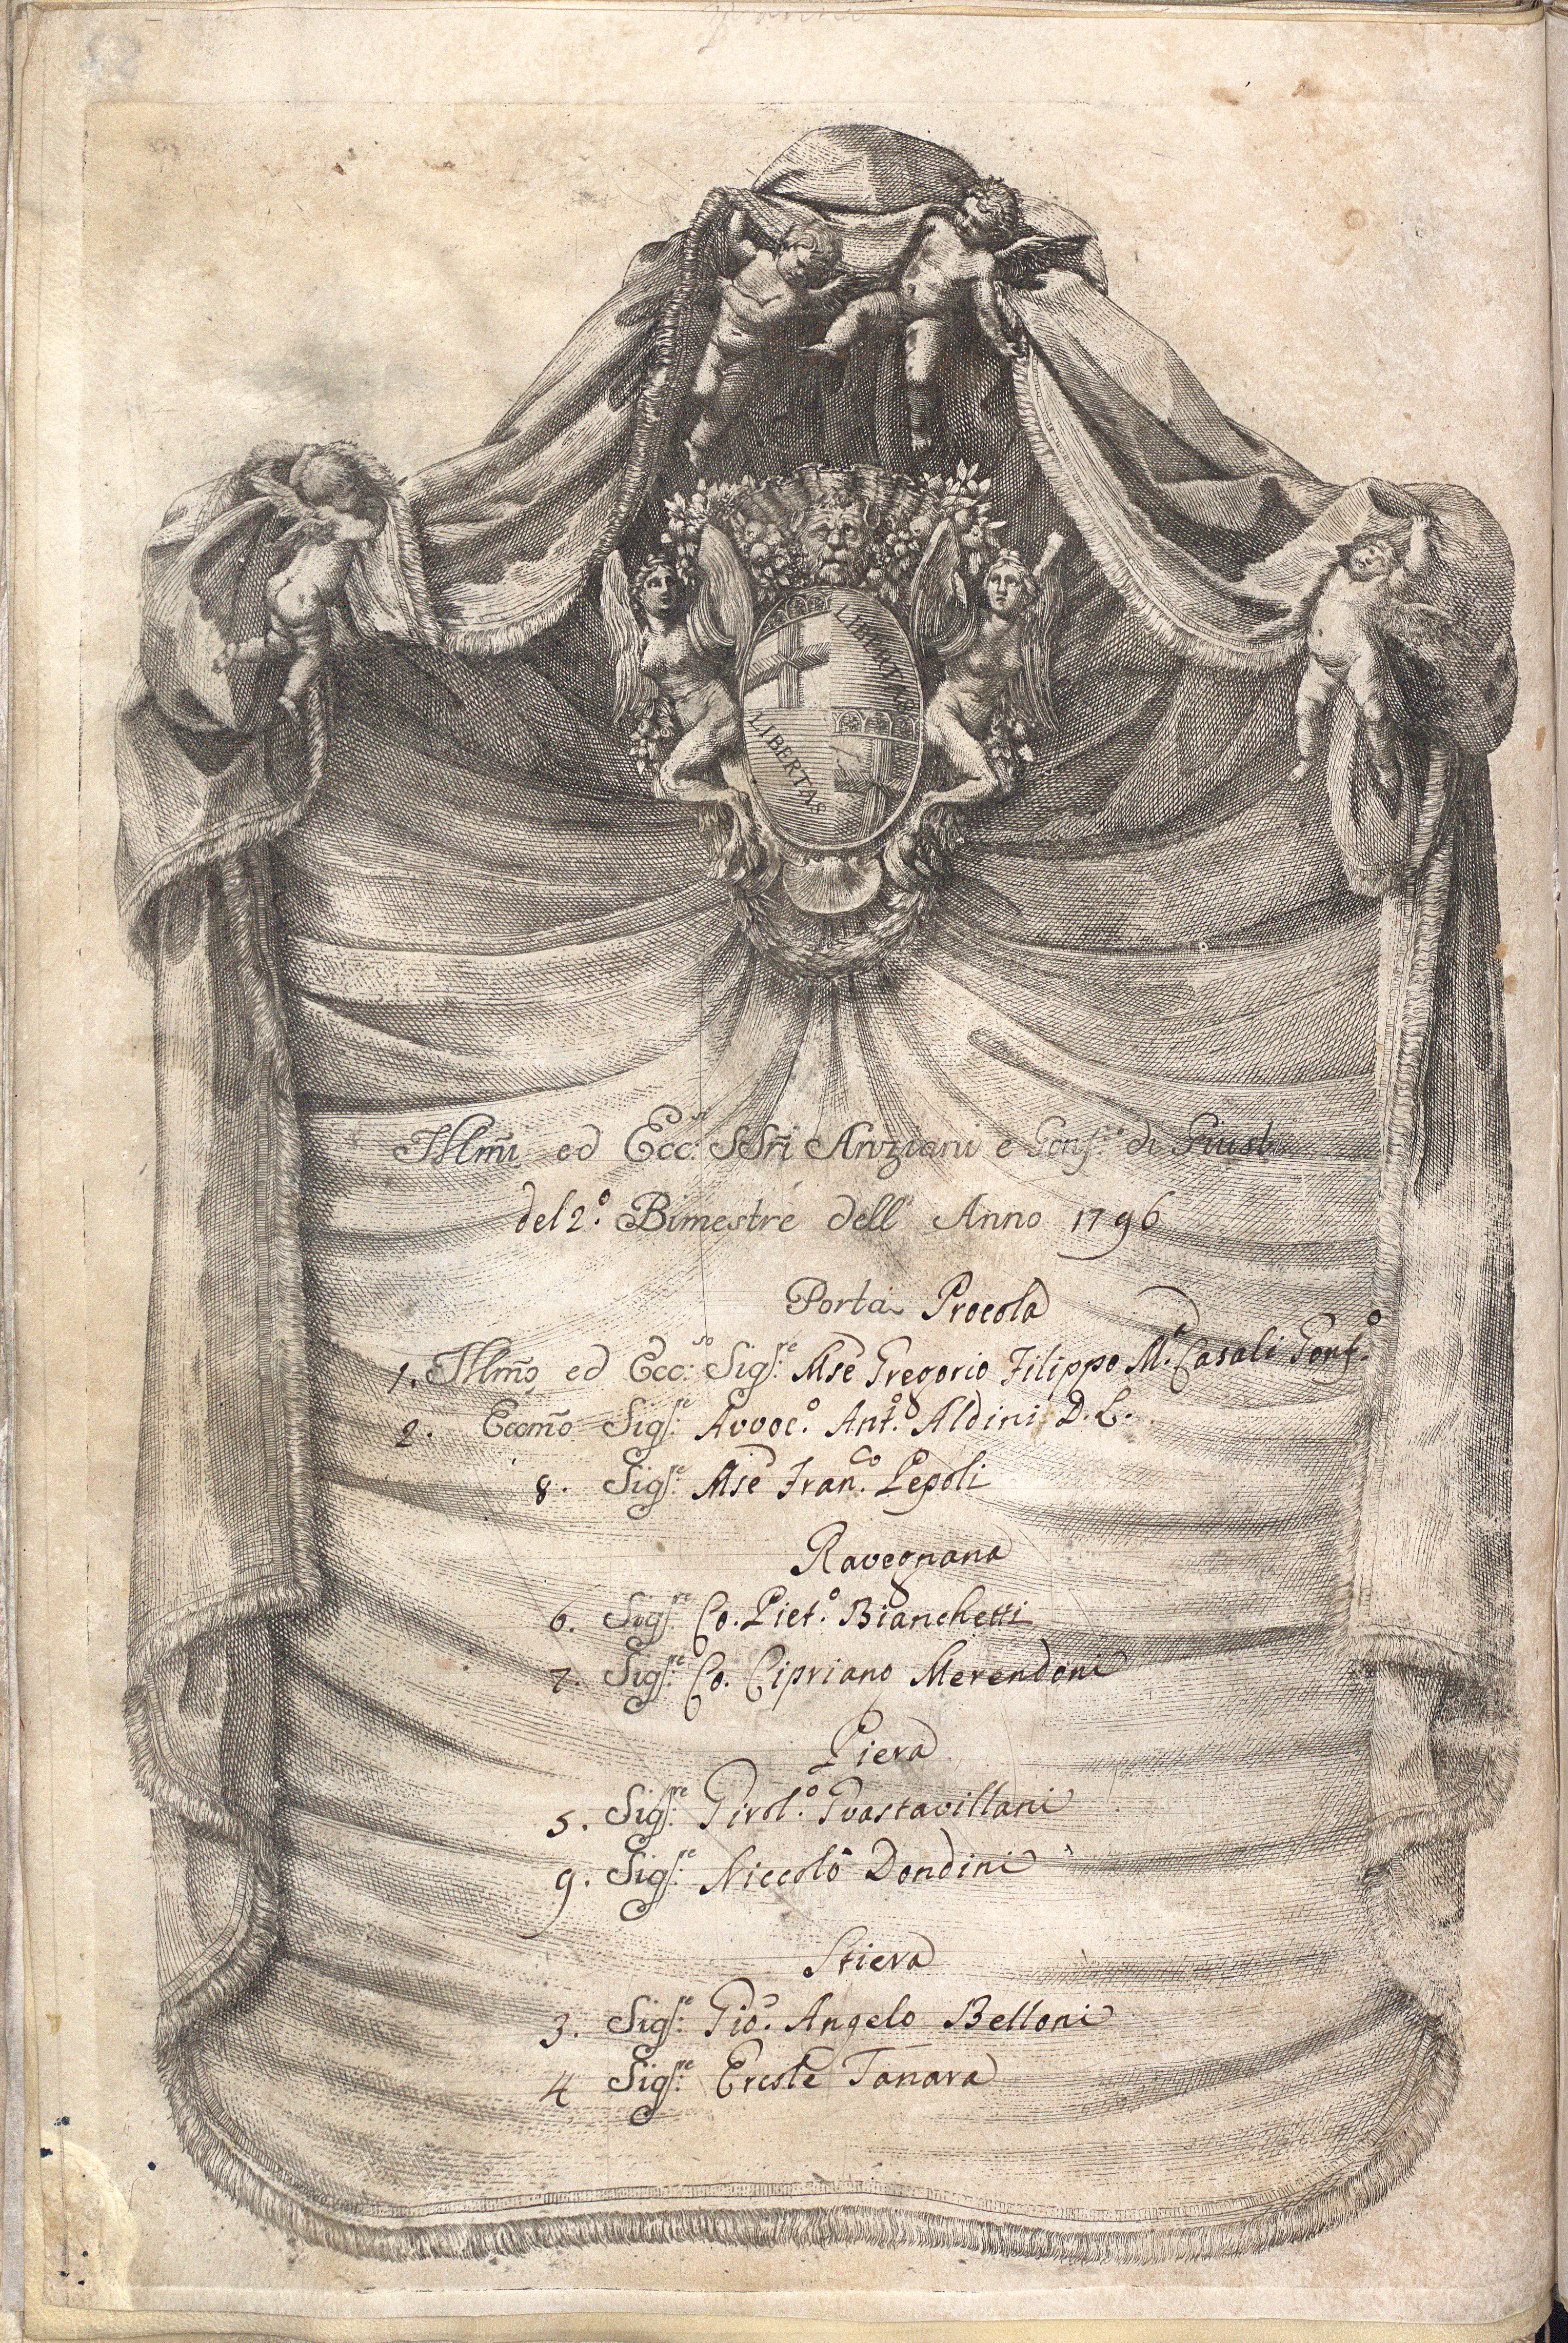 LIBERTAS
LIBERTAS
Illm̃i ed Ecc:si SSri Anziani e Gonf:re di Giust
del 2.o Bimestre dell' Anno 1796
Porta Procola
1. Illm̃o ed Ecc:so Sig:re Mse Gregorio Filippo Ma. Casali Gonf.o
2. Eccm̃o Sig:re Avvoc.o Ant.o Aldini D. L.
8. Sig:re Mse Fran.co Pepoli
Ravegnana
6. Sig:re Co. Piet.o Bianchetti
7. Sig:re Co. Cipriano Merendoni
Piera
5. Sig:re Girol.o Guastavillani
9. Sig:re Niccolò Dondini
Stiera
3. Sig:re Gio. Angelo Belloni
4 Sig:re Ercole Tanara